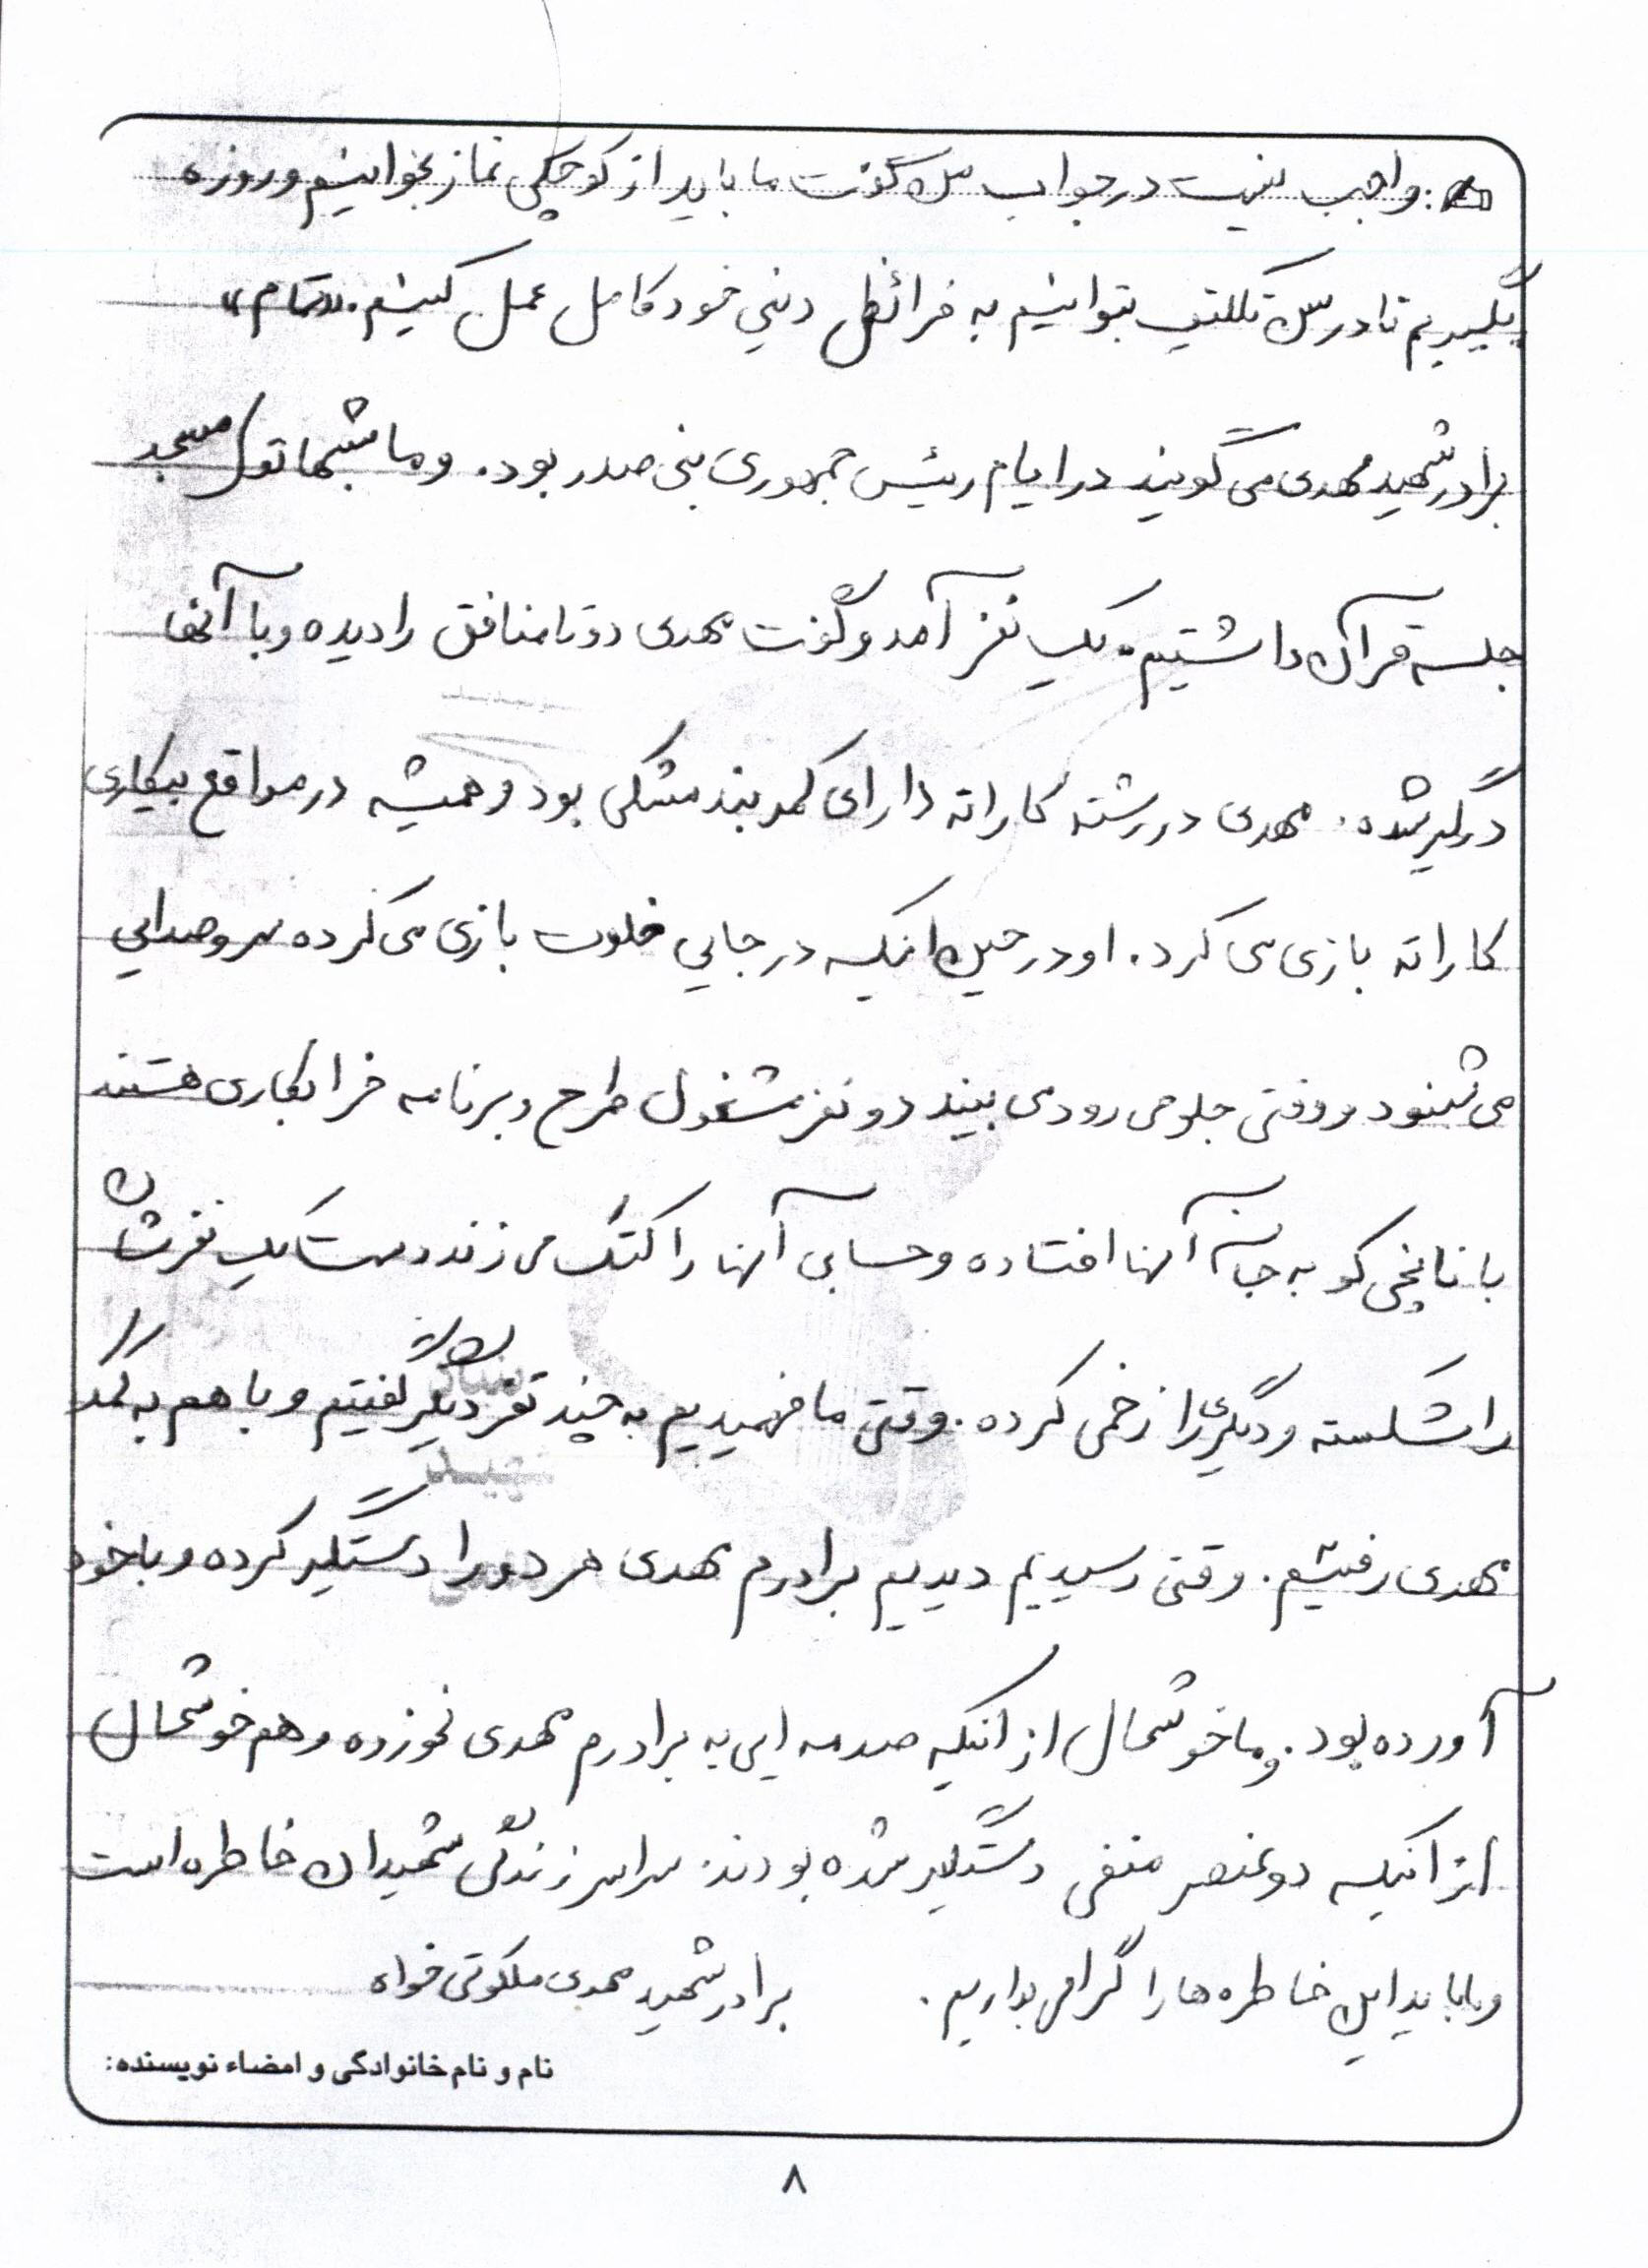 واجب نیست در جواب من گفت ما باید از کوچکی نماز بخوانیم و روزه
بگیریم تا در سن تکلیف بتوانیم به فرائض دینی خود کامل عمل کنیم. «تمام»
برادر شهید مهدی می گویند در ایام رئیس جمهوری بنی صدر بود. و ما شبها توی مسجد
جلسه قرآن داشتیم. یک نفر آمد و گفت مهدی دو تا منافق را دیده و با آنها
درگیر شده. مهدی در رشته کاراته دارای کمربند مشکی بود و همیشه در مواقع بیکاری
کاراته بازی می کرد. او در حین اینکه در جایی خلوت بازی می کرده سر و صدایی
می شنود و وقتی جلو می رود می بیند دو نفر مشغول طرح و برنامه خرابکاری هستند
با نانچی کو به جان آنها افتاده و حسابی آنها را کتک می زند دست یک نفرشان
را شکسته و دیگری را زخمی کرده. وقتی ما فهمیدیم به چند نفر دیگر گفتیم و با هم به کمک
مهدی رفتیم. وقتی رسیدیم دیدیم برادرم مهدی هر دو را دستگیر کرده و با خود
آورده بود. و ما خوشحال از اینکه صدمه ایی به برادرم مهدی نخورده و هم خوشحال
از اینکه دو عنصر منفی دستگیر شده بودند. سراسر زندگی شهیدان خاطره است
و ما باید این خاطره ها را گرامی بداریم. برادر شهید مهدی ملکوتی خواه
نام و نام خانوادگی و امضاء نویسنده:
۸